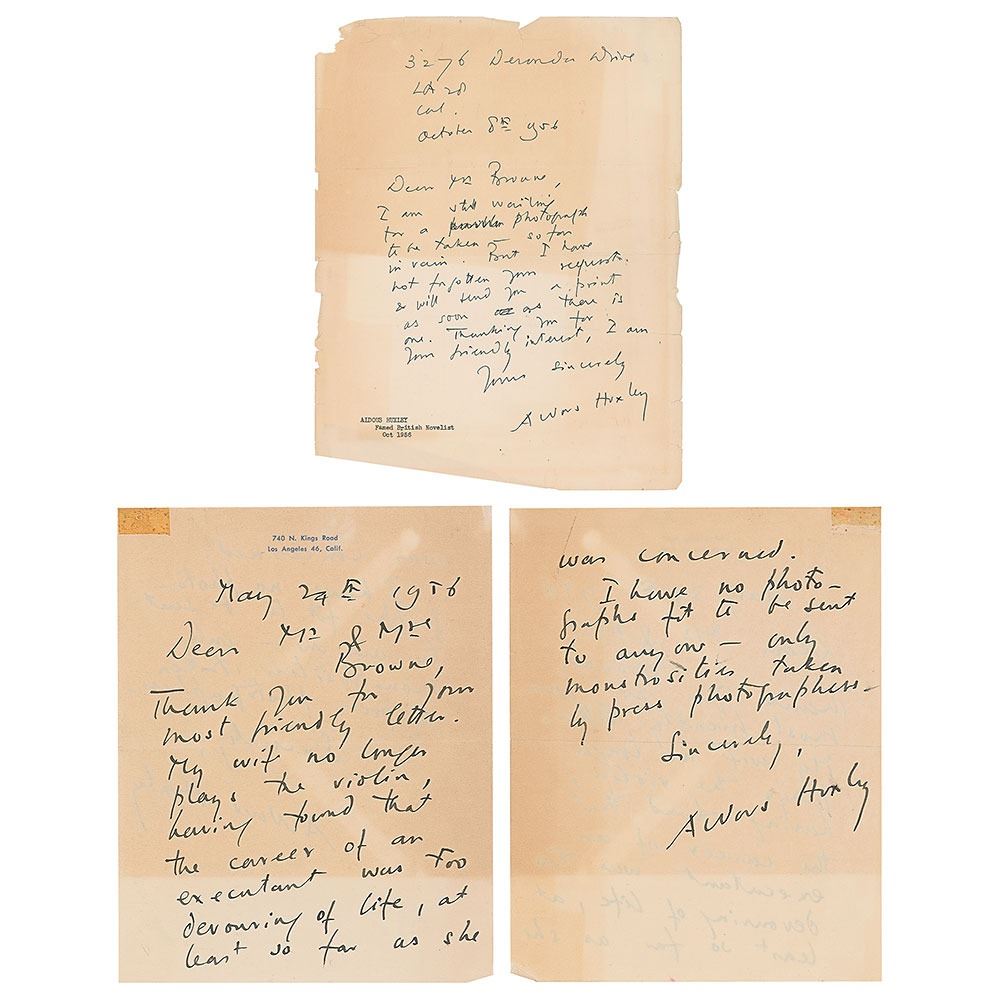 3276 Deronda Drive
LA 28
Cal.
October 8th 1956
Dear Mr Browne,
I am still waiting
for a photograph
to be taken — so far
in vain. But I have
not forgotten your request
& will send you a print
as soon as there is
one. Thanking you for
your friendly interest, I am
Yours sincerely
Aldous Huxley
ALDOUS HUXLEY
Famed British Novelist
Oct 1956
740 N. Kings Road
Los Angeles 46, Calif.
May 29th 1956
Dear Mr & Mrs
Browne,
Thank you for your
most friendly letter.
My wife no longer
plays the violin,
having found that
the career of an
executant was too
devouring of life, at
least so far as she
was concerned.
I have no photo-
graphs fit to be sent
to anyone — only
monstrosities taken
by press photographers—
Sincerely,
Aldous Huxley